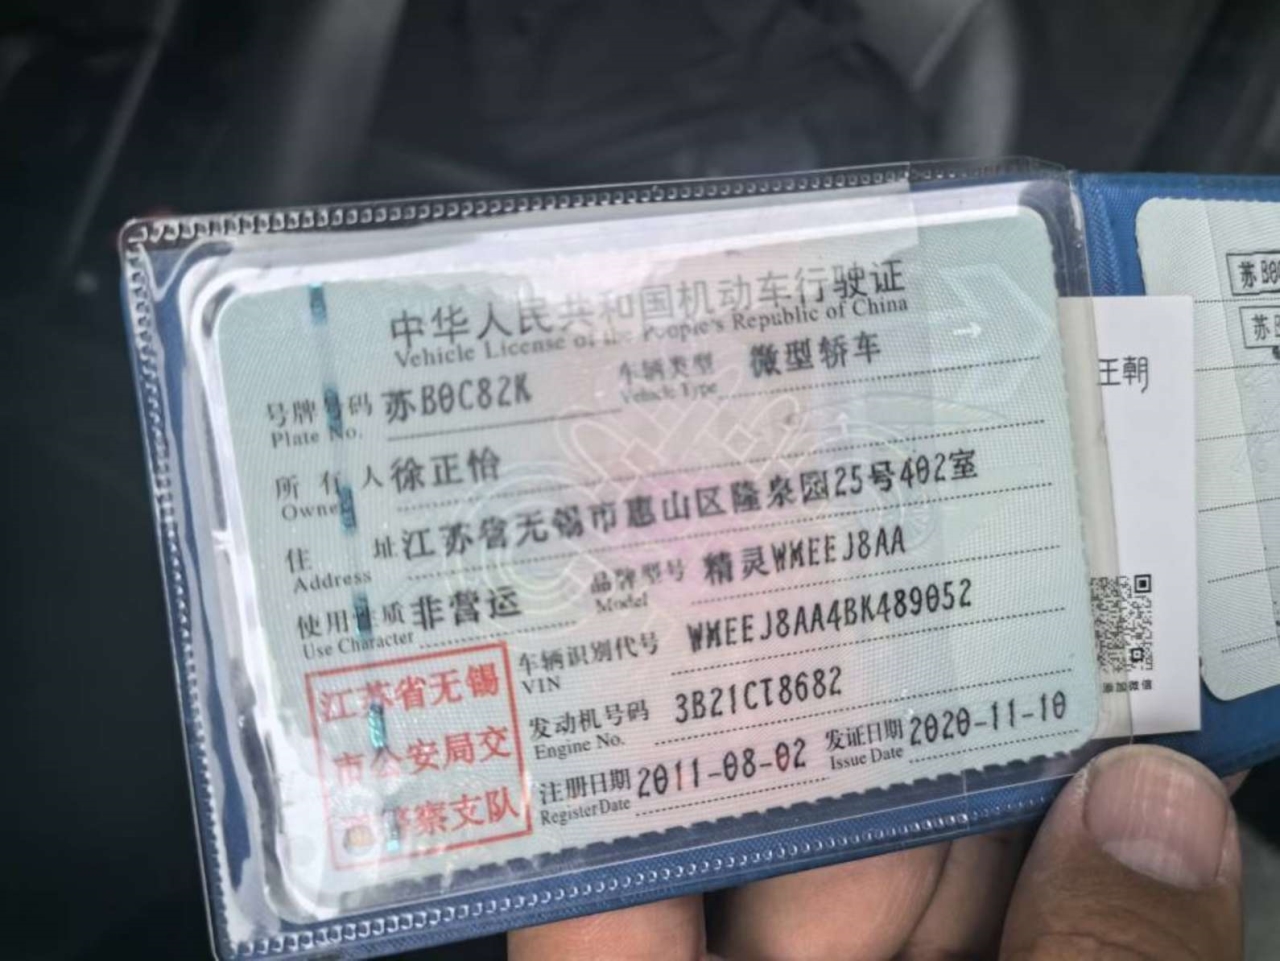 中华人民共和国机动车行驶证
Vehicle License of the People's Republic of China
号牌号码 苏B0C82K 车辆类型 微型轿车
Plate No. Vehicle Type
所有人 徐正怡
Owner
住址 江苏省无锡市惠山区隆泉园25号402室
Address
使用性质 非营运 品牌型号 精灵WMEEJ8AA
Use Character Model
车辆识别代号 WMEEJ8AA4BK489052
VIN
发动机号码 3B21CT8682
Engine No.
注册日期 2011-08-02 发证日期 2020-11-10
Register Date Issue Date
江苏省无锡
市公安局交
警察支队
王朝
添加微信
苏B0
苏